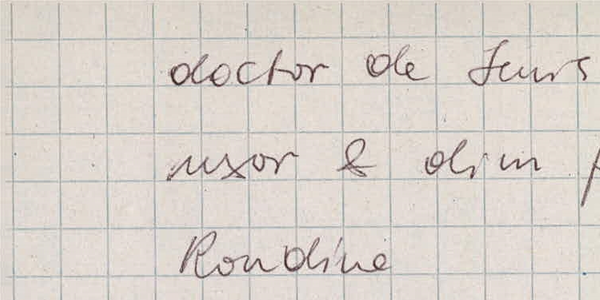 doctor de Juris
uxor & olim
Rondine